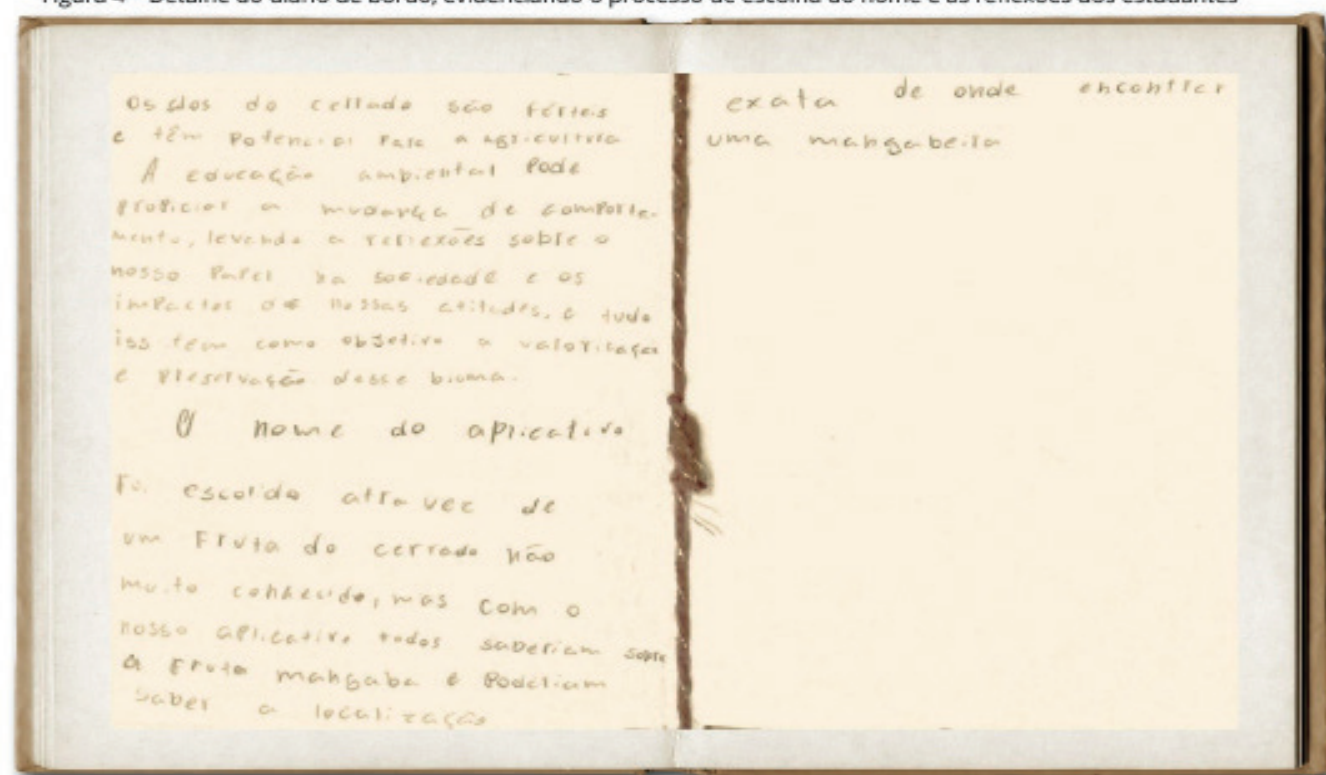 Figura 4 - Detalhe do diário de bordo, evidenciando o processo de escolha do nome e as reflexões dos estudantes
os slos do cerrado são férteis
e têm potencial para a agricultura
A educação ambiental pode
propiciar a mudança de comporta-
mento, levando a reflexões sobre o
nosso papel na sociedade e os
impactos de nossas atitudes, e tudo
iss tem como objetivo a valorização
e preservação desse bioma.
O nome do aplicativo
Foi escolido atra vez de
um Fruta do cerrado não
muito conhecido, mas com o
nosso aplicativo todos saberiam sobre
a Fruta mangaba e poderiam
saber a localização
exata de onde encontrar
uma mangabeira